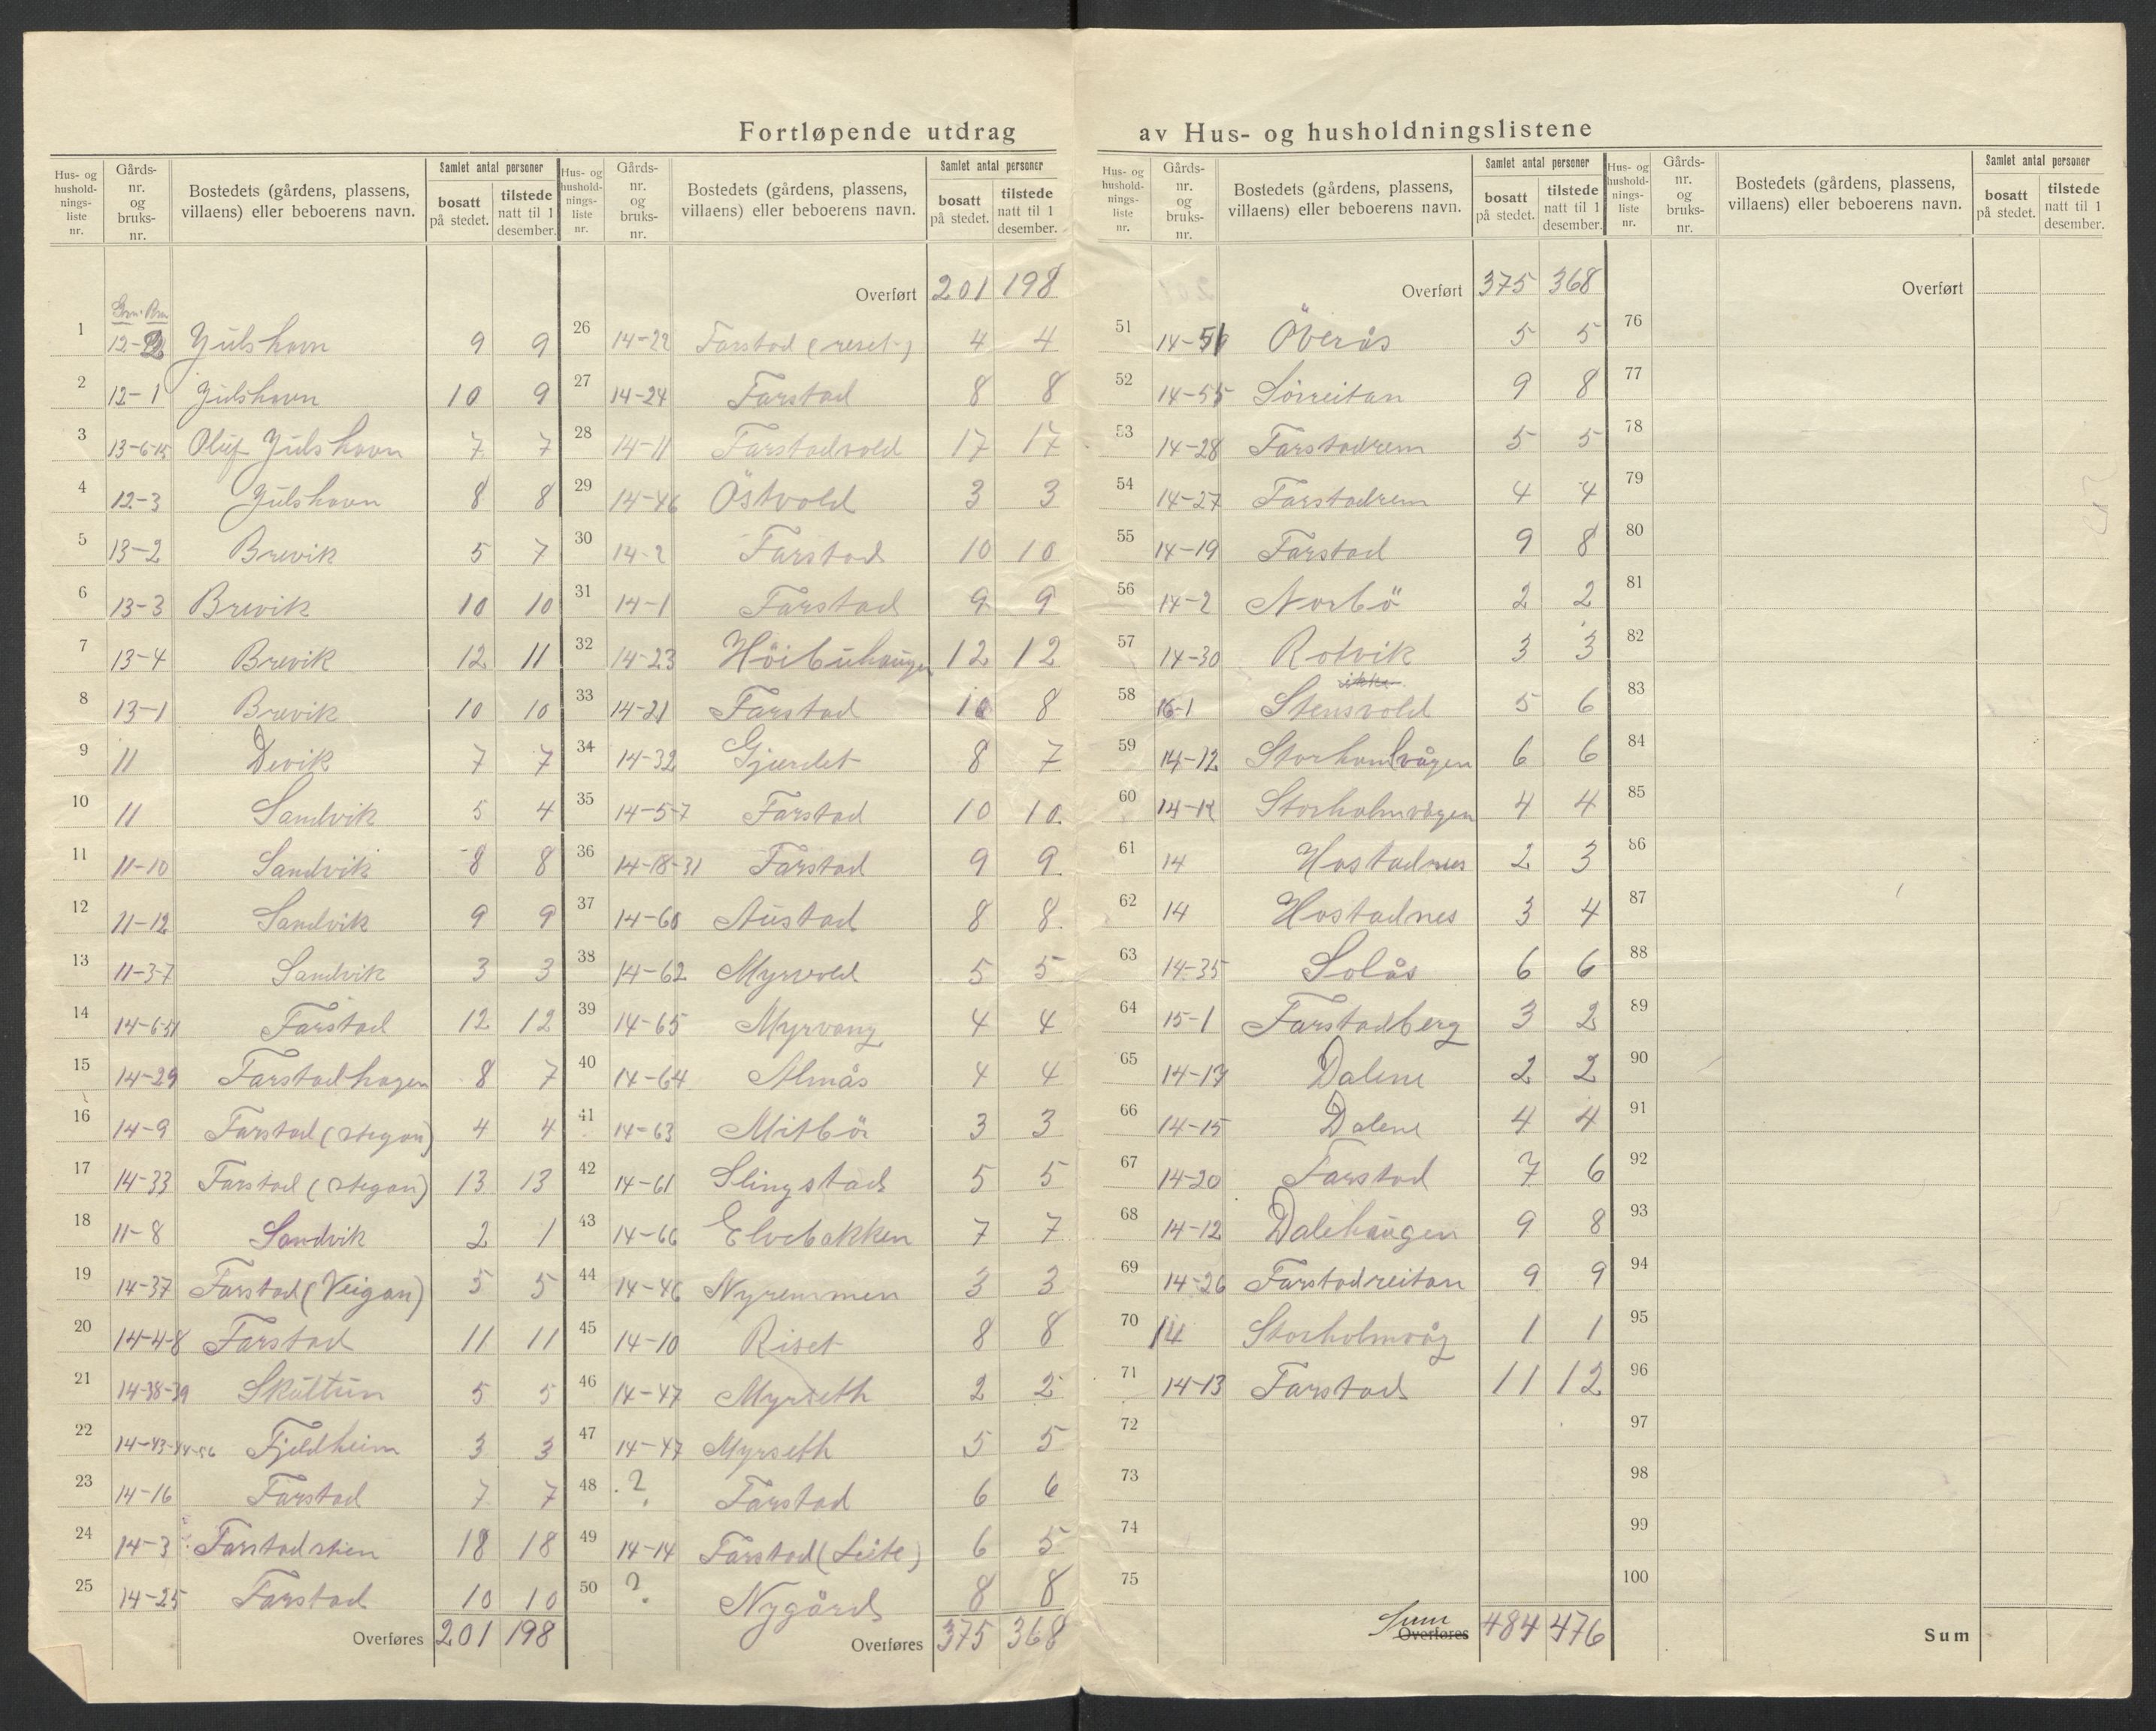 Fortløpende utdrag av Hus- og husholdningslistene
Hus- og hushold- nings- liste nr. | Gårds- nr. og bruks- nr. | Bostedets (gårdens, plassens, villaens) eller beboerens navn. | Samlet antal personer | bosatt på stedet. | tilstede natt til 1 desember.
Hus- og hushold- nings- liste nr. | Gårds- nr. og bruks- nr. | Bostedets (gårdens, plassens, villaens) eller beboerens navn. | Samlet antal personer | bosatt på stedet. | tilstede natt til 1 desember.
Hus- og hushold- nings- liste nr. | Gårds- nr. og bruks- nr. | Bostedets (gårdens, plassens, villaens) eller beboerens navn. | Samlet antal personer | bosatt på stedet. | tilstede natt til 1 desember.
Hus- og hushold- nings- liste nr. | Gårds- nr. og bruks- nr. | Bostedets (gårdens, plassens, villaens) eller beboerens navn. | Samlet antal personer | bosatt på stedet. | tilstede natt til 1 desember.
1 12-2 Julshavn 9 9
2 12-1 Julshavn 10 9
3 13-6-15 Oluf Julshavn 7 7
4 12-3 Julshavn 8 8
5 13-2 Brevik 5 7
6 13-3 Brevik 10 10
7 13-4 Brevik 12 11
8 13-1 Brevik 10 10
9 11 Devik 7 7
10 11 Sandvik 5 4
11 11-10 Sandvik 8 8
12 11-12 Sandvik 9 9
13 11-3-7 Sandvik 3 3
14 14-6-51 Farstad 12 12
15 14-29 Farstadhagen 8 7
16 14-9 Farstad (Stegan) 4 4
17 14-33 Farstad (Stegan) 13 13
18 11-8 Sandvik 2 1
19 14-37 Farstad (Veigan) 5 5
20 14-4-8 Farstad 11 11
21 14-38-39 Skultun 5 5
22 14-43-44-56 Fjeldheim 3 3
23 14-16 Farstad 7 7
24 14-3 Farstadstien 18 18
25 14-25 Farstad 10 10
Overføres 201 198
Overført 201 198
26 14-22 Farstad (reset) 4 4
27 14-24 Farstad 8 8
28 14-11 Farstadvold 17 17
29 14-46 Östvold 3 3
30 14-2 Farstad 10 10
31 14-1 Farstad 9 9
32 14-23 Höibuhaugen 12 12
33 14-21 Farstad 10 8
34 14-32 Gjerdet 8 7
35 14-5-7 Farstad 10 10
36 14-18-31 Farstad 9 9
37 14-60 Austad 8 8
38 14-62 Myrvold 5 5
39 14-65 Myrvang 4 4
40 14-64 Almås 4 4
41 14-63 Mitbö 3 3
42 14-61 Slingstad 5 5
43 14-66 Elvebakken 7 7
44 14-46 Nyremmen 3 3
45 14-10 Riset 8 8
46 14-47 Myrseth 2 2
47 14-47 Myrseth 5 5
48 ? Farstad 6 6
49 14-14 Farstad (Leite) 6 5
50 ? Nygård 8 8
Overføres 375 368
Overført 375 368
51 14-51 Överås 5 5
52 14-55 Sörreitan 9 8
53 14-28 Farstadrem 5 5
54 14-27 Farstadrem 4 4
55 14-19 Farstad 9 8
56 14-2 Norbö 2 2
57 14-30 Rotvik 3 3
58 16-1 Stensvold 5 6
59 14-12 Storholmvågen 6 6
60 14-12 Storholmvågen 4 4
61 14 Hostadnes 2 3
62 14 Hostadnes 3 4
63 14-35 Solås 6 6
64 15-1 Farstadberg 3 2
65 14-17 Dalene 2 2
66 14-15 Dalene 4 4
67 14-20 Farstad 7 6
68 14-12 Dalehaugen 9 8
69 14-26 Farstadreitan 9 9
70 14 Storholmvåg 1 1
71 14-13 Farstad 11 12
72
73
74
75
Overføres Sum 484 476
Overført
76
77
78
79
80
81
82
83
84
85
86
87
88
89
90
91
92
93
94
95
96
97
98
99
100
Sum